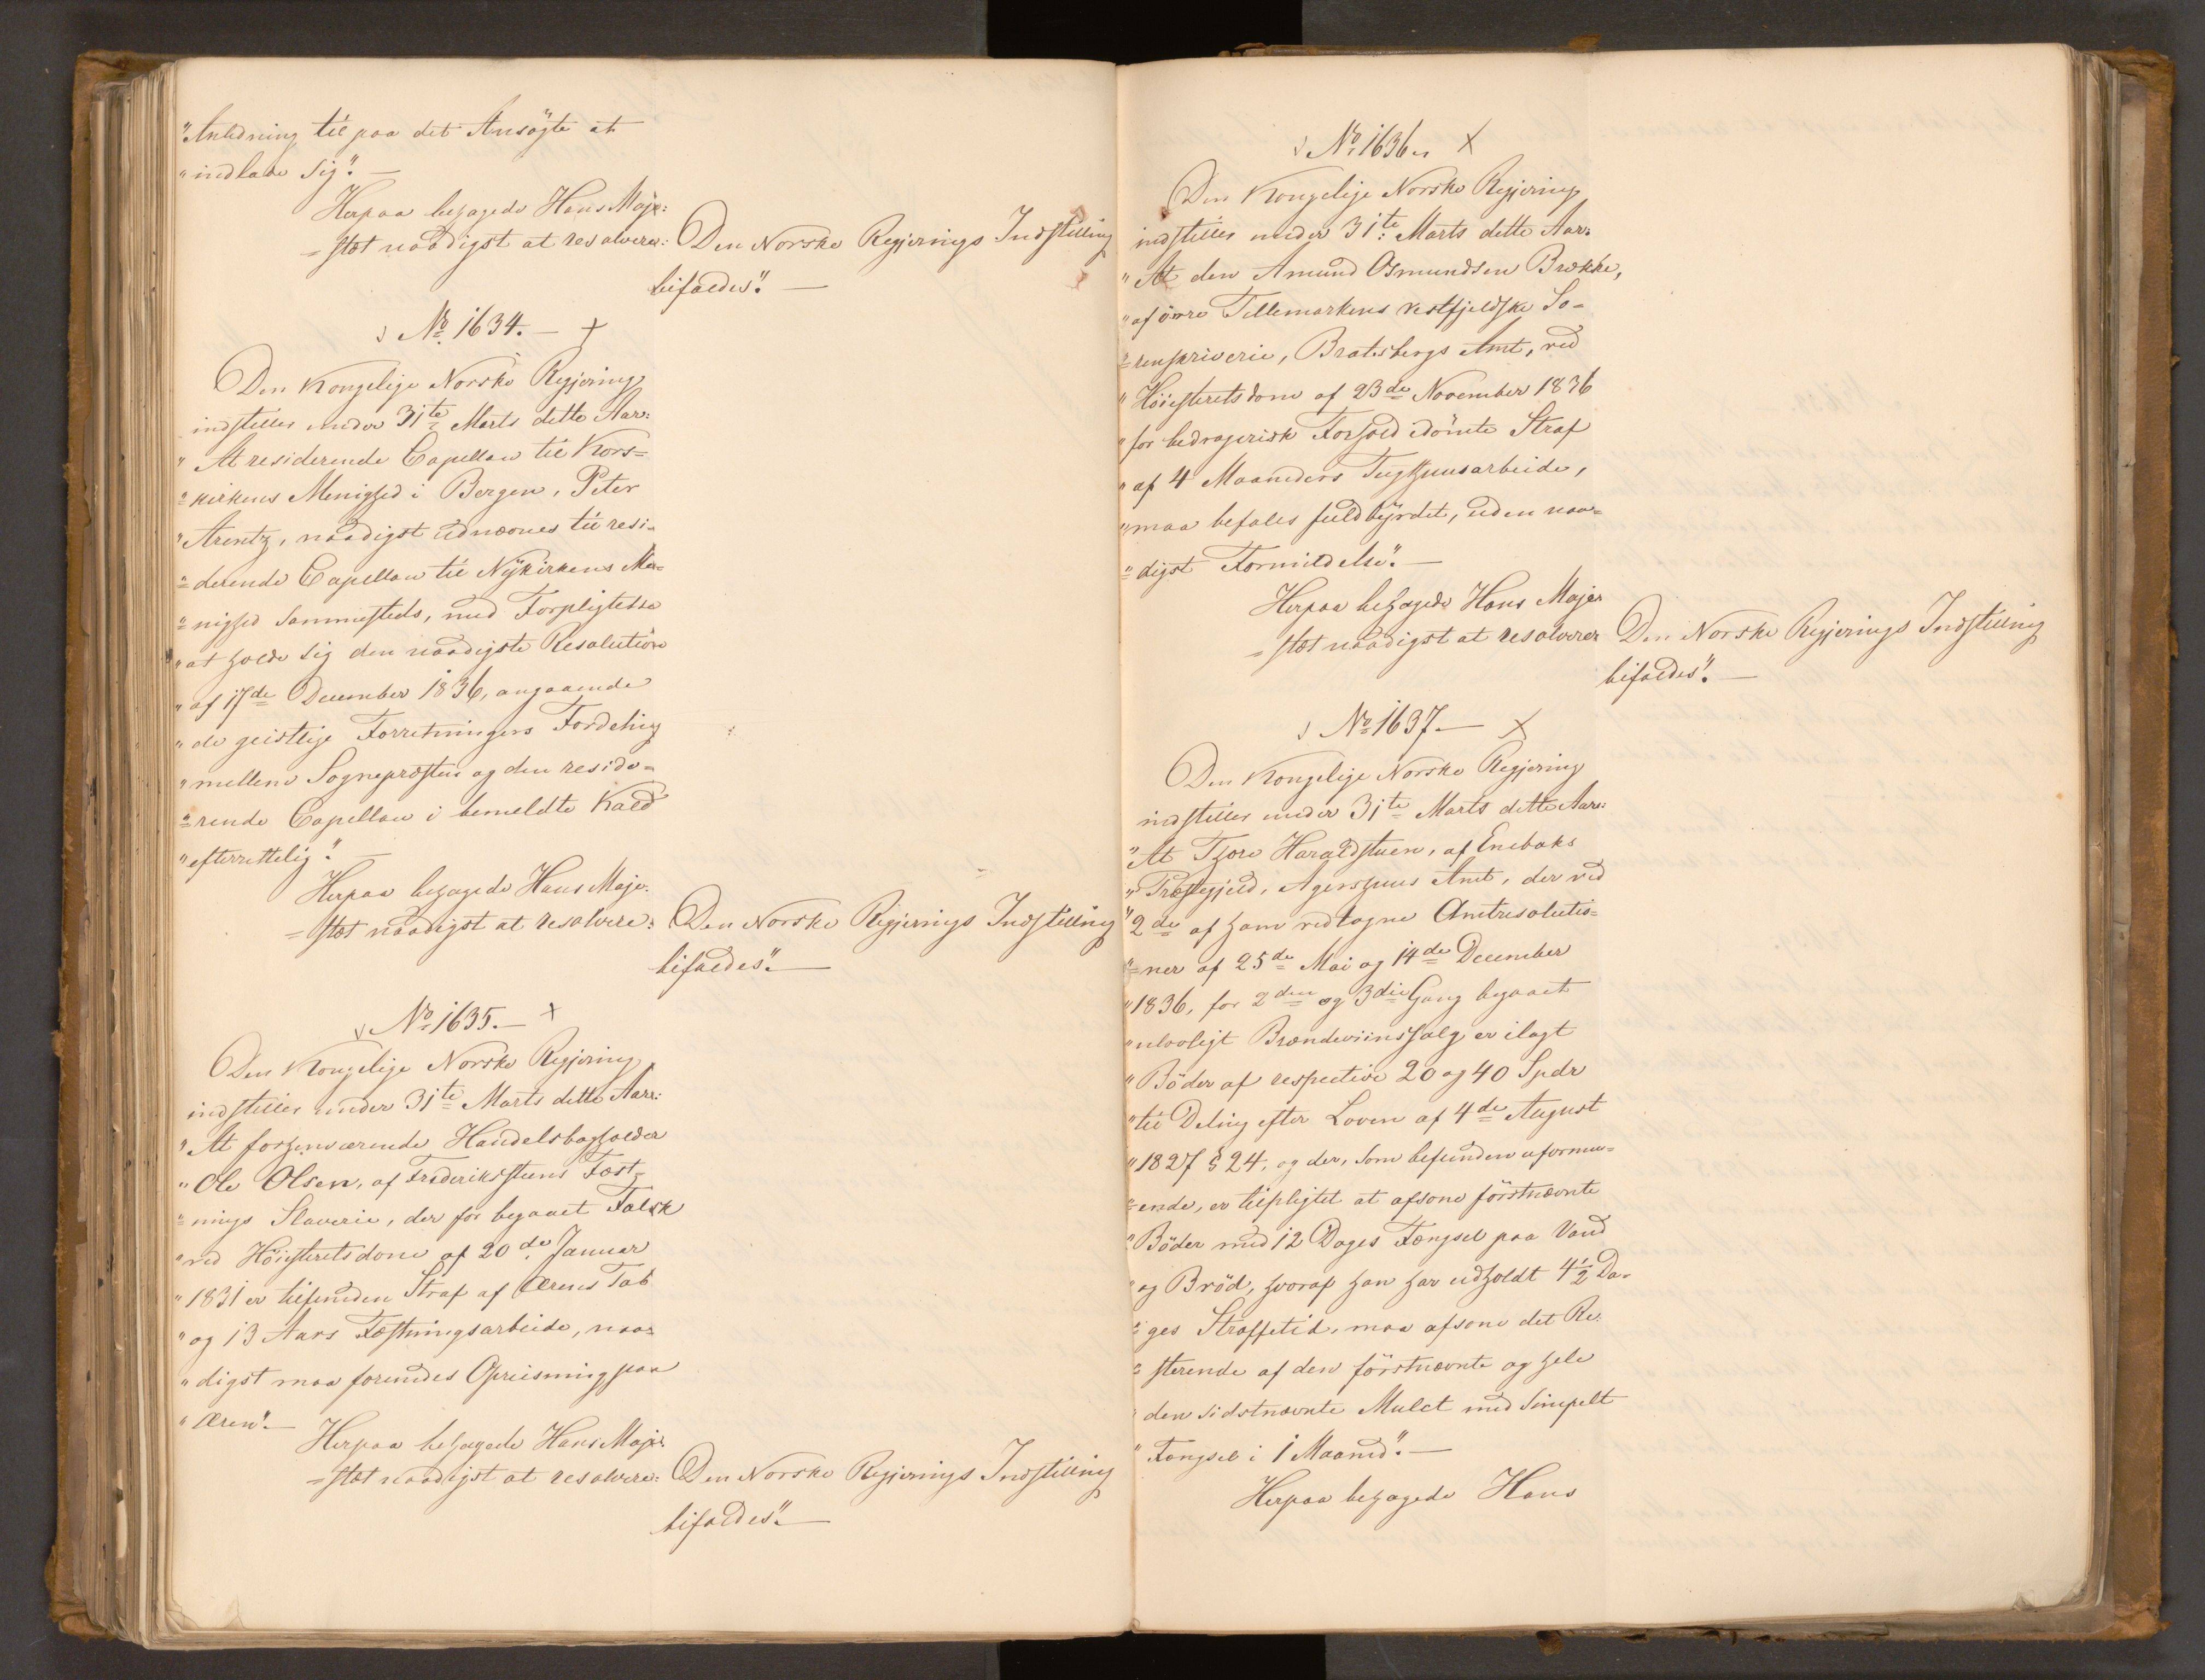 "Anledning til paa det Ansøgte at
"indlade sig". —
Herpaa behagede Hans Maje:
=stæt naadigst at resolvere: Den Norske Regjerings Indstilling
bifaldes". —
No 1634. — +
Den Kongelige Norske Regjering
indstiller under 31te Marts dette Aar:
"At residerende Capellan til Kors=
"=kirkens Menighed i Bergen, Peter
"Arentz, naadigst udnævnes til resi=
"=derende Capellan til Nykirkens Me=
"=nighed sammesteds, med Forpligtelse
"at holde sig den naadigste Resolution
"af 17de December 1836, angaaende
"de geistlige Forretningers Fordeling
"mellem Sognepræsten og den reside=
"=rende Capellan i bemeldte Kald
"efterrettelig". —
Herpaa behagede Hans Maje:
=stæt naadigst at resolvere: Den Norske Regjerings Indstilling
bifaldes". —
No 1635. — +
Den Kongelige Norske Regjering
indstiller under 31te Marts dette Aar:
"At forhenværende Handelsbogholder
"Ole Olsen, af Frederikstens Fæst=
"=nings Slaverie, der for begaaet Falsk
"ved Høiesteretsdom af 20de Januar
"1831 er tilfunden Straf af Ærens Tab
"og 13 Aars Fæstningsarbeide, naa=
"digst maa forundes Opreisning paa
"Æren". —
Herpaa behagede Hans Maje:
=stæt naadigst at resolvere: Den Norske Regjerings Indstilling
bifaldes". —
No 1636. +
Den Kongelige Norske Regjering
indstiller under 31te Marts dette Aar:
"At den Amund Osmundsen Brække,
"af øvre Tellemarkens vestfjeldske So=
"=renskriverie, Bratsbergs Amt, ved
"Høiesteretsdom af 23de November 1836
"for bedragerisk Forhold idømte Straf
"af 4 Maaneders Tugthuusarbeide,
"maa befales fuldbyrdet, uden naa=
"=digst Formildelse". —
Herpaa behagede Hans Maje=
=stæt naadigst at resolvere Den Norske Regjerings Indstilling
bifaldes". —
No 1637 — +
Den Kongelige Norske Regjering
indstiller under 31te Marts dette Aar:
"At Thore Haraldstuen, af Enebaks
"Præstegjeld, Agershuus Amt, der ved
"2de af ham vedtagne Amtresolutio=
"=ner af 25de Mai og 14de December
"1836, for 2den og 3die Gang begaaet
"ulovligt Brændeviinssalg er ilagt
"Bøder af respective 20 og 40 Spdr
"til Deling efter Loven af 4de August
"1827 § 24, og der, som befunden uformu=
"=ende, er tilpligtet at afsone førstnævnte
"Bøder med 12 Dages Fængsel paa Vand
"og Brød, hvoraf han har udholdt 4½ Da=
"=ges Straffetid, maa afsone det Re=
"=sterende af den førstnævnte og hele
"den sidstnævnte Mulct med simpelt
"Fængsel i 1 Maaned". —
Herpaa behagede Hans